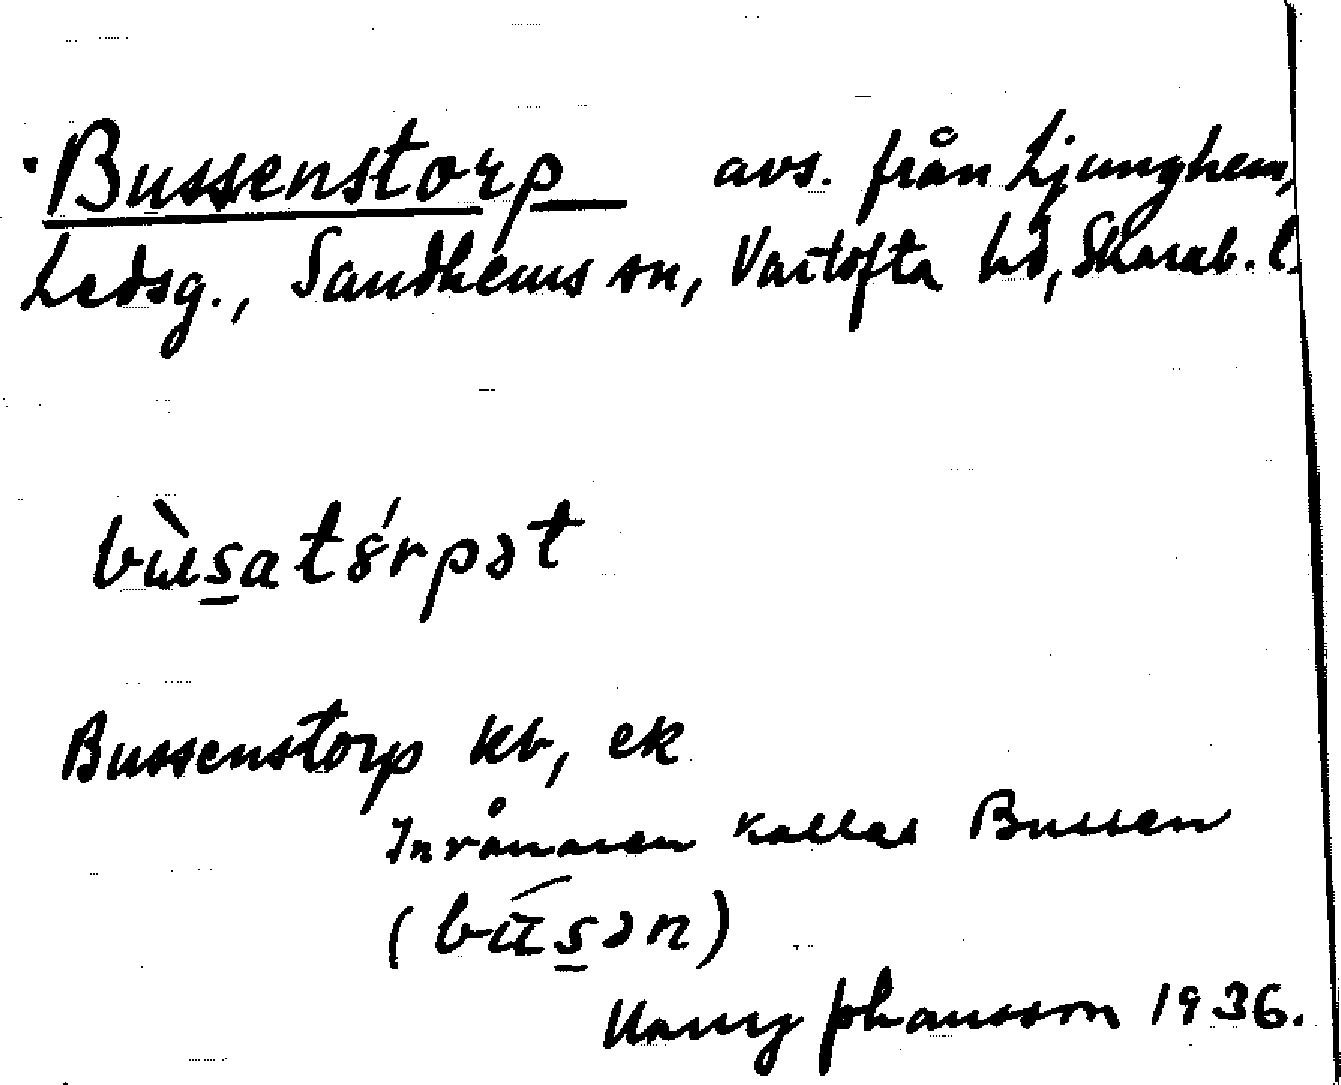 Bussenstorp avs. från Ljunghem,
Ledsg., Sandhems sn, Vartofta hd, Skarab. l.
bùs̠atórpət
Bussenstorp kb, ek
Invånaren kallas Bussen
(bús̠ən)
Harry Johansson 1936.